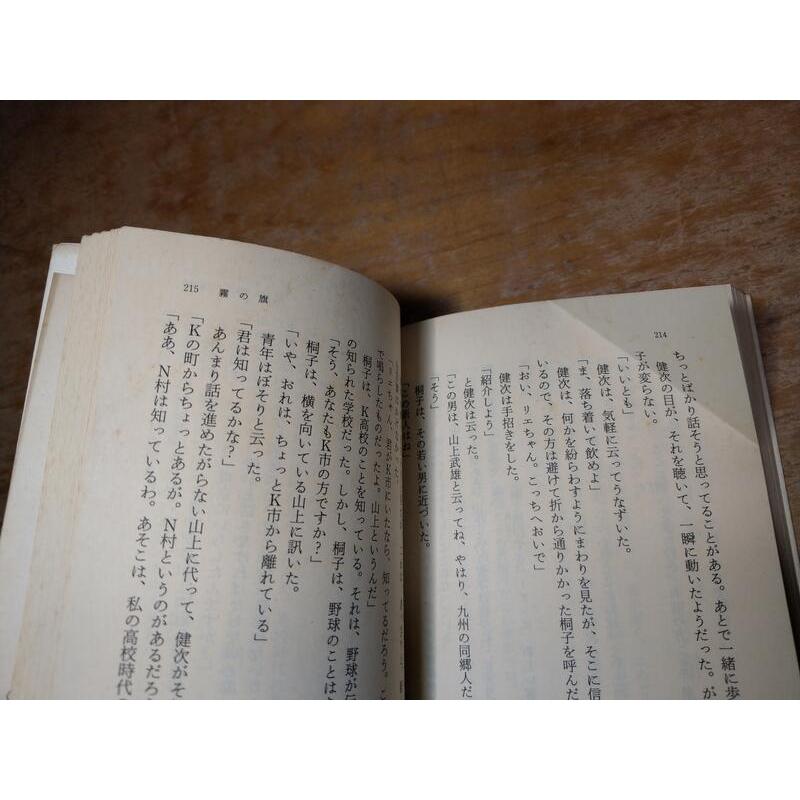 214
ちっとばかり話そうと思ってることがある。あとで一緒に歩
健次の目が、それを聴いて、一瞬に動いたようだった。が
子が変らない。
「いいとも」
健次は、気軽に云ってうなずいた。
「ま、落ち着いて飲めよ」
健次は、何かを紛らわすようにまわりを見たが、そこに信
いるので、その方は避けて折から通りかかった桐子を呼んだ
「おい、リエちゃん。こっちへおいで」
健次は手招きをした。
「紹介しよう」
と健次は云った。
「この男は、山上武雄と云ってね、やはり、九州の同郷人だ
「そう」
桐子は、その若い男に近づいた。
215 霧の旗
「リエちゃん、君がK市にいたなら、知ってるだろう。こ
で鳴らしたものだったよ。山上というんだ」
桐子は、K高校のことを知っている。それは、野球が
の知られた学校だった。しかし、桐子は、野球のことは
「そう、あなたもK市の方ですか?」
桐子は、横を向いている山上に訊いた。
「いや、おれは、ちょっとK市から離れている」
青年はぼそりと云った。
「君は知ってるかな?」
あんまり話を進めたがらない山上に代って、健次がそ
「Kの町からちょっとあるが。N村というのがあるだろ
「ああ、N村は知っているわ。あそこは、私の高校時代